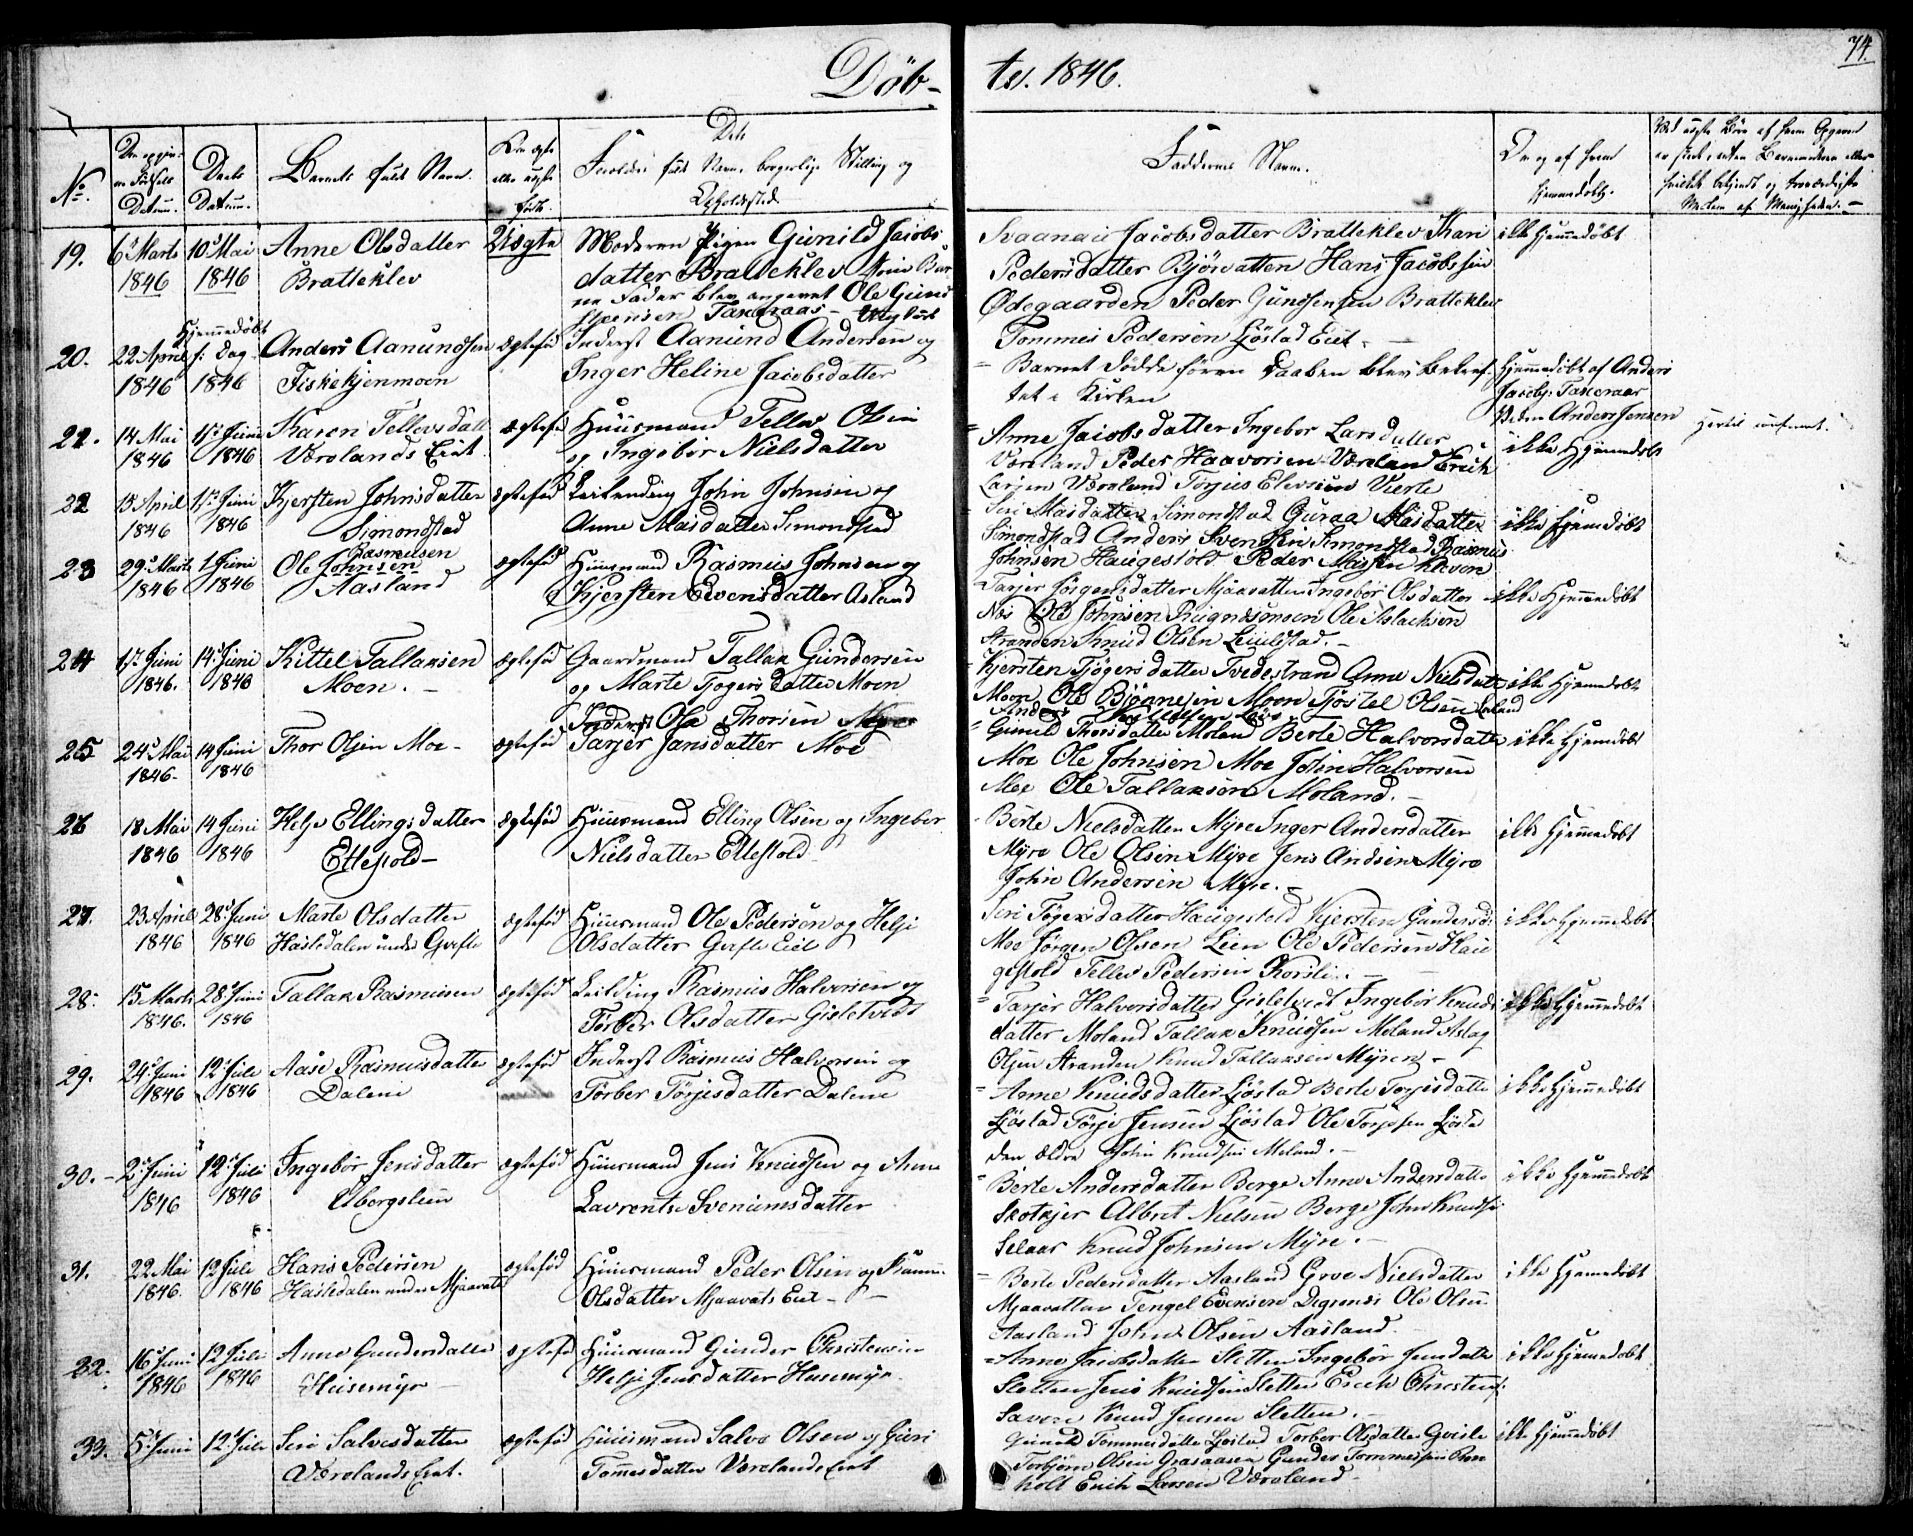 Døb-
ts. 1846.
74.
No.
Datum.
Daabs
Datum.
Barnets fulde Navn.
Om ægte
eller uægte
født.
Forældres fulde Navne borgerlige Stilling og
Opholdssted
Faddernes Navne.
hjemmedøbt.
19.
6te Marts
1846
10de Mai
1846
Anne Olsdatter
Bratteklev
Uægte
Moderen Pigen Gunild Jacobs
datter Bratteklev
Fader blev angivet Ole Gund
Svaanaug Jacobsdatter Bratteklev Kari
Pedersdatter Bjørvatten Hans Jacobsen
Ødegaarden Peder Gundsensen Bratteklev
Tommes Pedersen Ljøstad Eiet
ikke Hjemmedøbt
20.
22 April
1846
Hjemmedøbt
s: Dag
1846
Anders Aanundsen
Fiskekjenmoen
Ægtefød
Inderst Aanund Andersen og
Inger Heline Jacobsdatter
Barnet døde føren Daaben blev bekræf
tet i Kirken
Hjemmedøbt af Anders
Jacobs: Taxeraas
Anders Jensen
21.
14 Mai
1846
1te Juni
1846
Karen Tellevsdatt
Værelands Eiet
ægtefø
Huusmand Tellev Olsen
og Ingebor Nielsdatter
Anne Jacobsdatter Ingebor Larsdatter
Væreland Peder Haavorsen Væreland Erich
Larsen Væreland Torjus Elevsen Vierle
ikke Hjemmedøbt
22
15 April
1846
1te Juni
1846
Kjersten Johnsdatter
Simondstad
Ægtefød
Leilending John Johnsen og
Anne Maisdatter Simondstad
Seri Maisdatter Simondstad Guraa Maisdatter
Simondstad Anders Svensen Simondstad Rasmus
Johnsen Haugestold Peder Maisen Kleven
ikke Hjemdøbt
23
29de Marts
1846
1 Juni
1846
Rasmusen
Ole Johnsen
Aasland
ægtefød
Huusmand Rasmus Johnsen og
Kjersten Evensdatter Asland
Tarjer Jørgensdatter Mjaavatten Ingebor Olsdatter
Næs Ole Johnsen Ole Aslachsen
Stranden Knud Olsen
ikke Hjemmedøbt
24
1te Juni
1846.
14 Juni
1846
Kittel Tallaksen
Moen.
Ægtefød
Gaardmand Tallak Gundersen
og Marte Tjøgersdatter Moen
Kjersten Tjøgersdatter Tvedestrand Anne Nielsdatt
Moen Ole Bjønnesen Moen Tjøstel Olsen
ikke Hjemmedøbt
25
24de Mai
1846
14 Juni
1846
Thor Olsen Moe
ægtefød
Inderst Ole Thorsen
Tarjer Jansdatter Moe
Gunild Thorsdatter Moland Berte Halvorsdatt
Moe Ole Johnsen Moe John Halvorsen
Moe Ole Tallaksen Moland.
ikke Hjemdøbt
26
18 Mai
1846
14 Juni
1846
Helje Ellingsdatter
Ettestold
ægtefød
Huusmand Elling Olsen og Ingebor
Nielsdatter Ettestold
Berte Nielsdatter Myre Inger Andersdatter
Myre Ole Olsen Myre Jens Andsen Myre
John Andersen Myre.
ikke Hjemmedøbt
27.
23 April
1846
28de Juni
1846
Marte Olsdatter
Hasledalen under
ægtefød
Huusmand Ole Pedersen og Helje
Olsdatter
Seri Tøgersdatter Haugestold Kjersten Gundersd:
Moe Jørgen Olsen Lien Ole Pedersen Hau
gestold Tellev Pedersen
ikke Hjemmedøbt
28.
15 Marts
1846.
28de Juni
1846
Tallak Rasmusen
ægtefød
Leilding Rasmus Halvorsen og
Torber Olsdatter Gisletvedt
Tarjer Halvorsdatter Gisletvedt Ingebor Knuds
datter Moland Tallak Knudsen Moland Aslag
Olsen Stranden Knud Tallaksen Myren
ikke Hjemmedøbt
29.
24de Juni
1846
12te Juli
1846
Aase Rasmusdatter
Dalene
ægtefød
Inderst Rasmus Halvorsen og
Torber Torjesdatter Dalene
Anne Knudsdatter Ljøstad Berte Torjesdatte
Ljøstad Torje Jensen Ljøstad Ole Torjesen Ljøstad
den ældre John Knudsen Moland.
ikke Hjemmedøbt
30.
2de Juni
1846
12te Juli
1846
Ingebor Jensdatter
ægtefød
Huusmand Jens Knudsen og Anne
Lavrentse Svenumsdatter
Berte Andersdatter Berge Anne Andersdatte
Albret Nielsen Berge John Knudse
Selaas Knud Johnsen Myre.
ikke Hjemmedøbt
31.
22 Mai
1846.
12 Juli
1846
Hans Pedersen
Hasledalen under Mjaavatn
ægtefød
Huusmand Peder Olsen og
Olsdatter Mjaavats Eiet
Berte Pedersdatter Aasland Groe Nielsdatter
Mjaavatten Tengel Evensen Ole Olsen
Aasland John Olsen Aasland.
ikke Hjemmedøbt
32.
16de Juni
1846
12 Juli
1846
Anne Gundersdatte
Husemyr
ægtefø
Huusmand Gunder Christensen
Helje Jensdatter Husemyr
Anne Jacobsdatter Sletten Ingebor Jensdatte
Sletten Jens Knudsen Sletten Erich Christens:
Savere Knud Jensen Sletten.
ikke Hjemmedøbt
33.
5te Juni
12te Juli
Seri Salvesdatter
Værelands Eiet.
ægtefød
Huusmand Salve Olsen og Guri
Tomesdatter Værelands Eiet
Gunild Tommesdatter Ljøstad Torber Olsdatter
Torbjørn Olsen Gunder Tommesen
holt Erich Larsen Væreland
ikke Hjemmedøbt